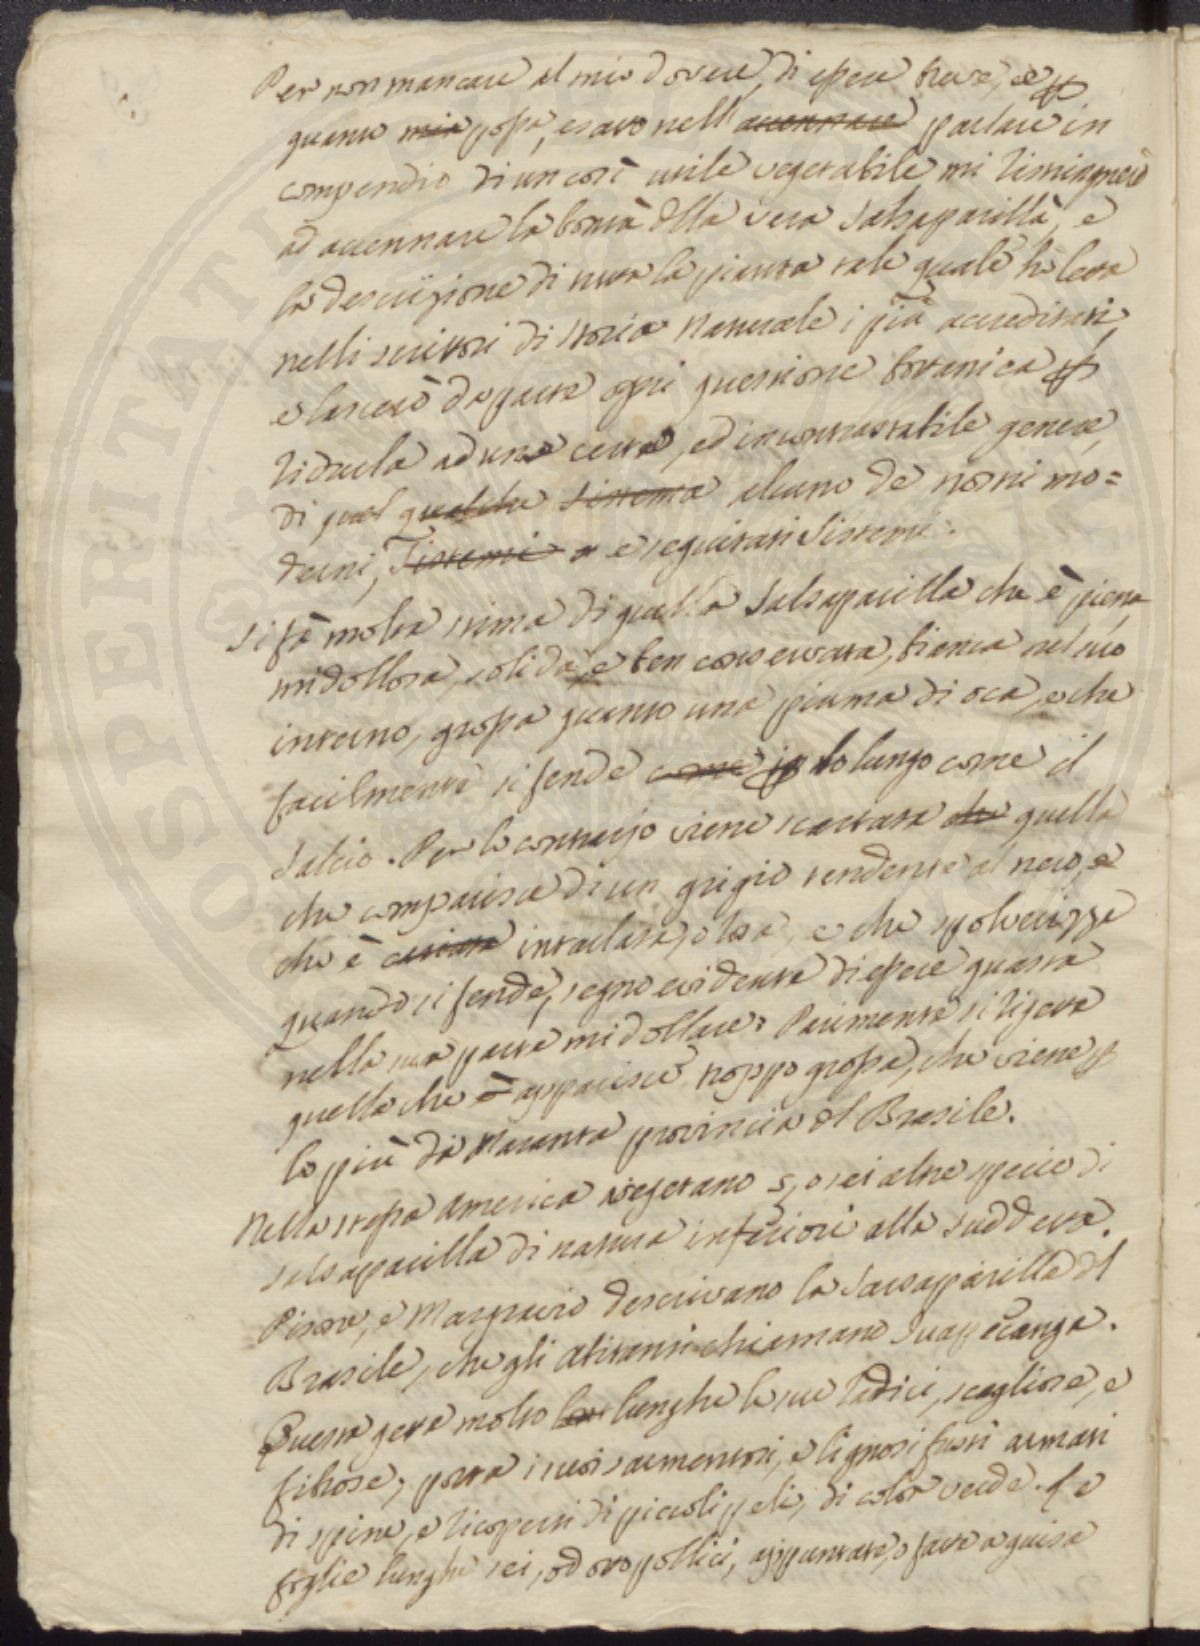 Per non mancare al mio dovere, di essere breve, e
quanto mia possa, esatto nell' accennare parlare in
compendio di un così utile vegetabile mi ristringnerò
ad accennare la bontà dlla vera Salsaparilla, e
la descrizione di tutta la pianta tale quale hò letta
nelli scrittori di storia Naturale i più accreditati,
e lascerò da parte ogni questione bottanica
ridurla ad una certa, ed incontrastabile genere,
di qual qualche sistema alcuno de nostri mo=
derni, Sistemi e seguitati Sistemi.
Si fà molta stima di quella Salsaparilla che è piena
midollosa, solida, e ben conservata, bianca nel suo
interno, grossa quanto una piuma di oca, e che
facilmente si fende come lo lungo come il
Salcio. Per lo contrario viene scartata che quella
che comparisce di un grigio tendente al nero, e
che è intarlata, e che spolverizza
quando si fende, segno evidente di essere guasta
nella sua parte midollare. Parimente si rigetta
quella che è apparisce troppo grossa, che viene
lo più da Maranta provincia dl Brasile.
Nella stessa America vegetano 5, o sei altre specie di
salsaparilla di natura inferiori alla suddetta.
Pisone, e Margravio descrivano la Salsaparilla dl
Brasile, che gli Abitanti chiamano Juapecanga.
Questa getta molto lunghe le sue radici, scagliose, e
fibrose, porta i suoi sarmentosi, e lignosi fusti armati
di spine, e ricoperti di piccoli peli, di color verde. Le
foglie lunghe sei, od otto pollici, appuntate, e fatte a guisa